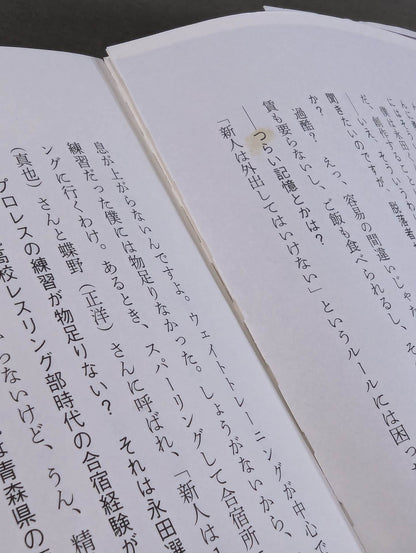 脱落者
んはそ永田という
僕は創作
だ、いえ、容易の間違いじゃ
聞きたいのですが、
か？　えっ、
過酷？　　ご飯も食べられるし、そ
賃も要らないし、
――つらい記憶とかは？
「新人は外出してはいけない」というルールには困っ
息が上がらないんですよ。ウェイトトレーニングが中心で
練習だった僕には物足りなかった。しょうがないから、
ングに行くわけ。あるとき、スパーリングして合宿所
（真也）さんと蝶野（正洋）さんに呼ばれ、「新人は
プロレスの練習が物足りない？　それは永田選
高校レスリング部時代の合宿経験が
らないけど、うん、精
は青森県の